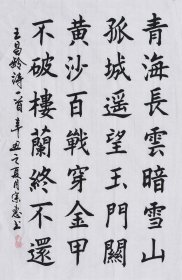 青海長雲暗雪山
孤城遥望玉門關
黄沙百戰穿金甲
不破樓蘭終不還
王昌齡詩一首辛丑之夏月